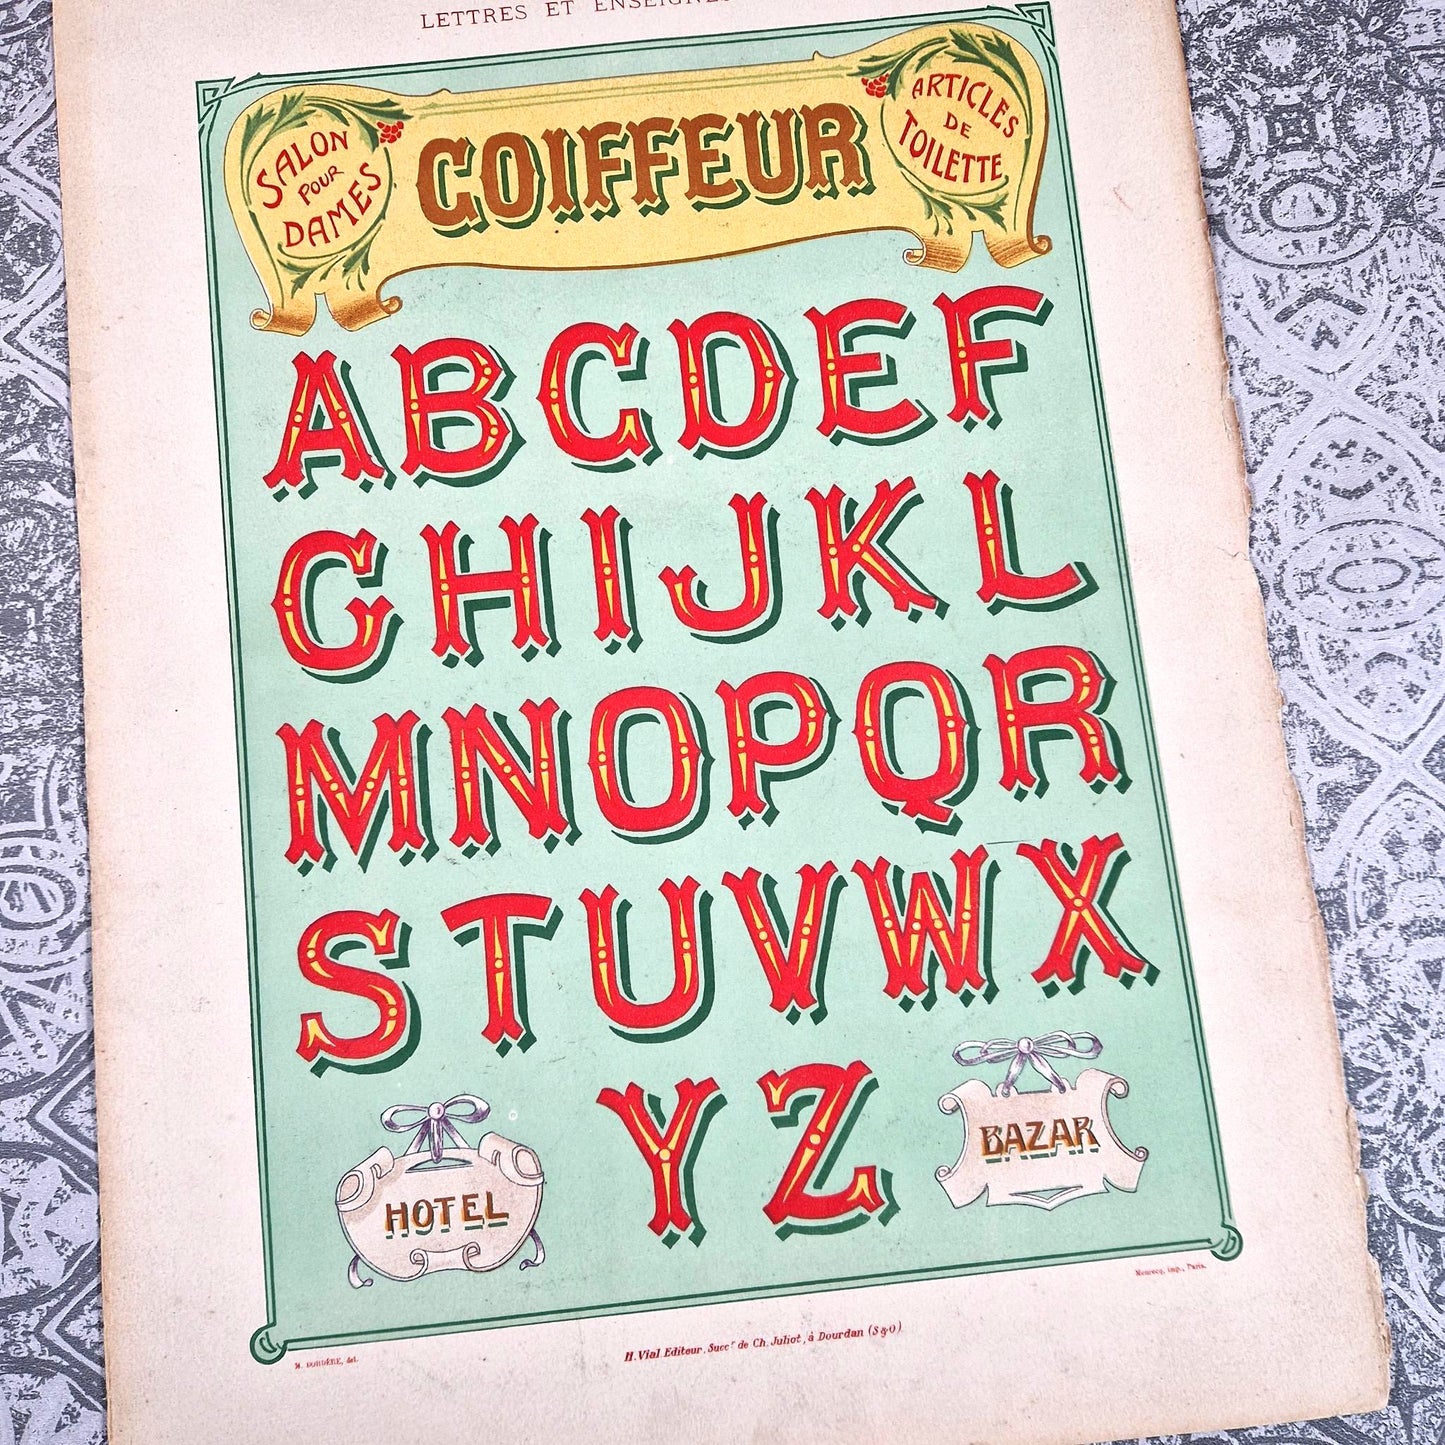 LETTRES ET ENSEIGNES
SALON
POUR
DAMES
COIFFEUR
ARTICLES
DE
TOILETTE
ABCDEF
GHIJKL
MNOPQR
STUVWX
YZ
HOTEL
BAZAR
Monrocq, imp., Paris.
H. Vial Editeur, Succr de Ch. Juliot, à Dourdan (S&O)